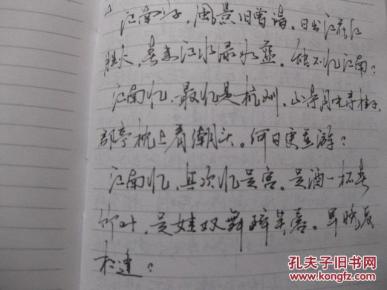 江南好，风景旧曾谙。日出江花红
胜火，春来江水绿如蓝。能不忆江南？
江南忆，最忆是杭州。山寺月中寻桂子，
郡亭枕上看潮头。何日更重游？
江南忆，其次忆吴宫。吴酒一杯春
竹叶，吴娃双舞醉芙蓉。早晚复
相逢？
孔夫子旧书网